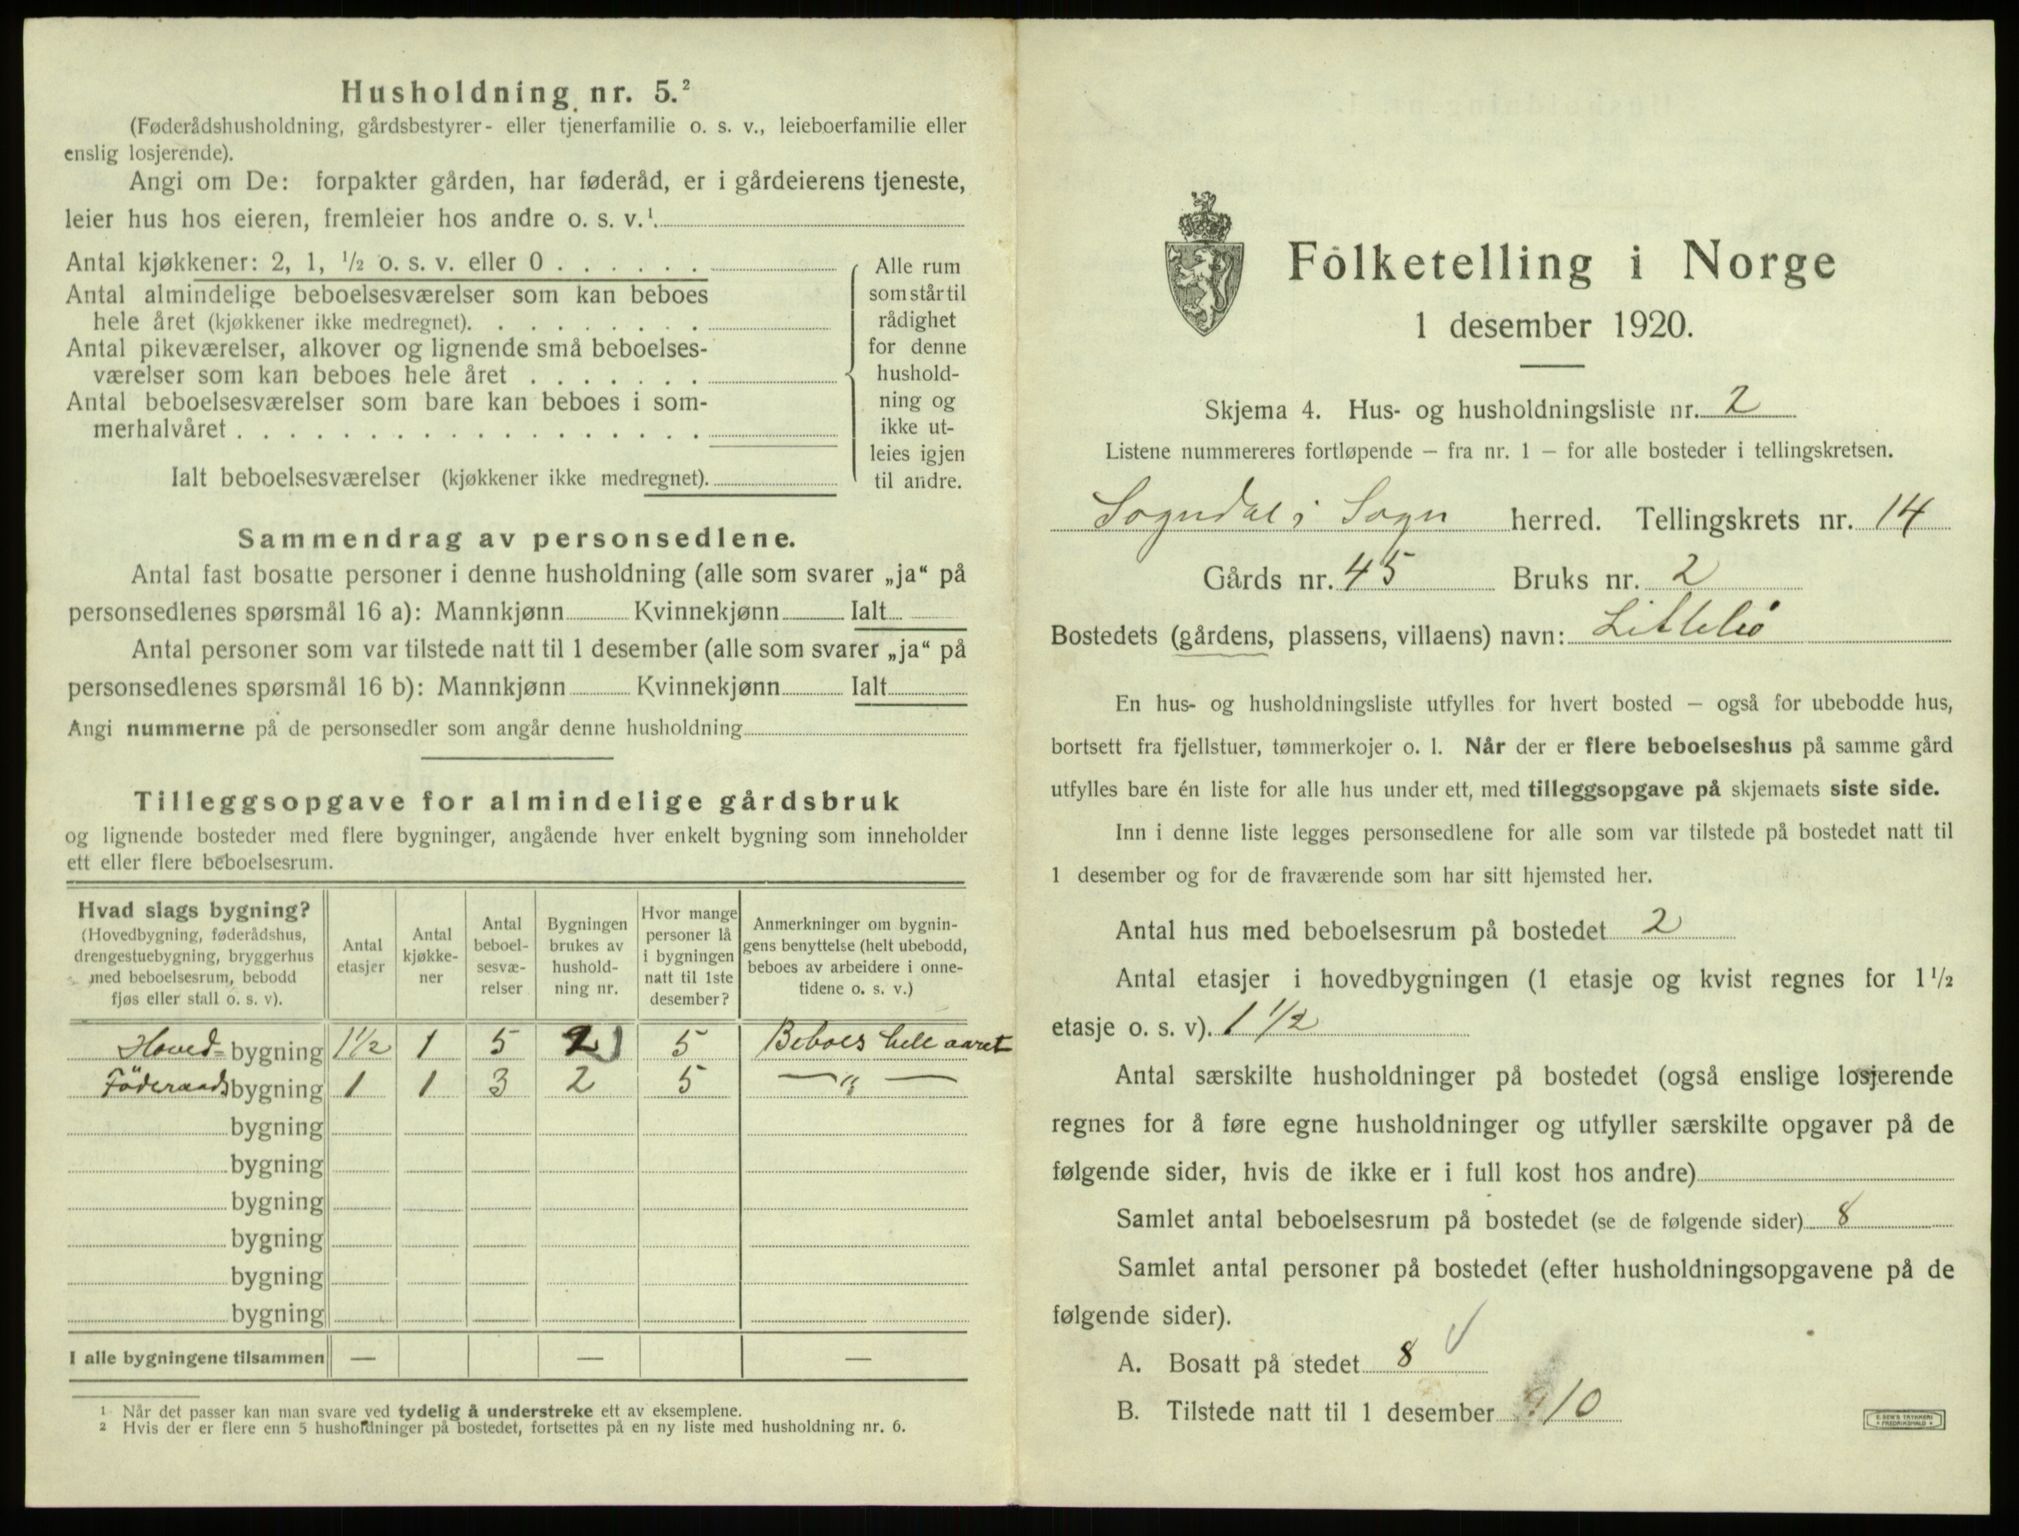 Husholdning nr. 5.²
(Føderådshusholdning, gårdsbestyrer- eller tjenerfamilie o. s. v., leieboerfamilie eller
enslig losjerende).
Angi om De: forpakter gården, har føderåd, er i gårdeierens tjeneste,
leier hus hos eieren, fremleier hos andre o. s. v.¹
Antal kjøkkener: 2, 1, ½ o. s. v. eller 0 . . . . . .
Antal almindelige beboelsesværelser som kan beboes
hele året (kjøkkener ikke medregnet). . . . . . . . .
Antal pikeværelser, alkover og lignende små beboelses-
værelser som kan beboes hele året . . . . . . .
Antal beboelsesværelser som bare kan beboes i som-
merhalvåret . . . . . . . . . . . . . . . . . .
Ialt beboelsesværelser (kjøkkener ikke medregnet).
Alle rum
som står til
rådighet
for denne
hushold-
ning og
ikke ut-
leies igjen
til andre.
Sammendrag av personsedlene.
Antal fast bosatte personer i denne husholdning (alle som svarer „ja“ på
personsedlenes spørsmål 16 a): Mannkjønn Kvinnekjønn Ialt
Antal personer som var tilstede natt til 1 desember (alle som svarer „ja“ på
personsedlenes spørsmål 16 b): Mannkjønn Kvinnekjønn Ialt
Angi nummerne på de personsedler som angår denne husholdning
Tilleggsopgave for almindelige gårdsbruk
og lignende bosteder med flere bygninger, angående hver enkelt bygning som inneholder
ett eller flere beboelsesrum.
Hvad slags bygning?
(Hovedbygning, føderådshus,
drengestuebygning, bryggerhus
med beboelsesrum, bebodd
fjøs eller stall o. s. v).
Antal
etasjer
Antal
kjøkke-
ner
Antal
beboel-
sesvæ-
relser
Bygningen
brukes av
hushold-
ning nr.
Hvor mange
personer lå
i bygningen
natt til 1ste
desember?
Anmerkninger om bygnin-
gens benyttelse (helt ubebodd,
beboes av arbeidere i onne-
tidene o. s. v.)
Hoved-bygning 1½ 1 5 5 Beboes hele aaret
Föderaadsbygning 1 1 3 2 5 — " —
bygning
bygning
bygning
bygning
bygning
bygning
I alle bygningene tilsammen — — —
¹ Når det passer kan man svare ved tydelig å understreke ett av eksemplene.
² Hvis der er flere enn 5 husholdninger på bostedet, fortsettes på en ny liste med husholdning nr. 6.
Folketelling i Norge
1 desember 1920.
Skjema 4. Hus- og husholdningsliste nr. 2
Listene nummereres fortløpende — fra nr. 1 — for alle bosteder i tellingskretsen.
Sogndal i Sogn herred. Tellingskrets nr. 14
Gårds nr. 45 Bruks nr. 2
Bostedets (gårdens, plassens, villaens) navn:
En hus- og husholdningsliste utfylles for hvert bosted — også for ubebodde hus,
bortsett fra fjellstuer, tømmerkojer o. l. Når der er flere beboelseshus på samme gård
utfylles bare én liste for alle hus under ett, med tilleggsopgave på skjemaets siste side.
Inn i denne liste legges personsedlene for alle som var tilstede på bostedet natt til
1 desember og for de fraværende som har sitt hjemsted her.
Antal hus med beboelsesrum på bostedet 2
Antal etasjer i hovedbygningen (1 etasje og kvist regnes for 1½
etasje o. s. v). 1½
Antal særskilte husholdninger på bostedet (også enslige losjerende
regnes for å føre egne husholdninger og utfyller særskilte opgaver på de
følgende sider, hvis de ikke er i full kost hos andre)
Samlet antal beboelsesrum på bostedet (se de følgende sider) 8
Samlet antal personer på bostedet (efter husholdningsopgavene på de
følgende sider).
A. Bosatt på stedet 8
B. Tilstede natt til 1 desember 10